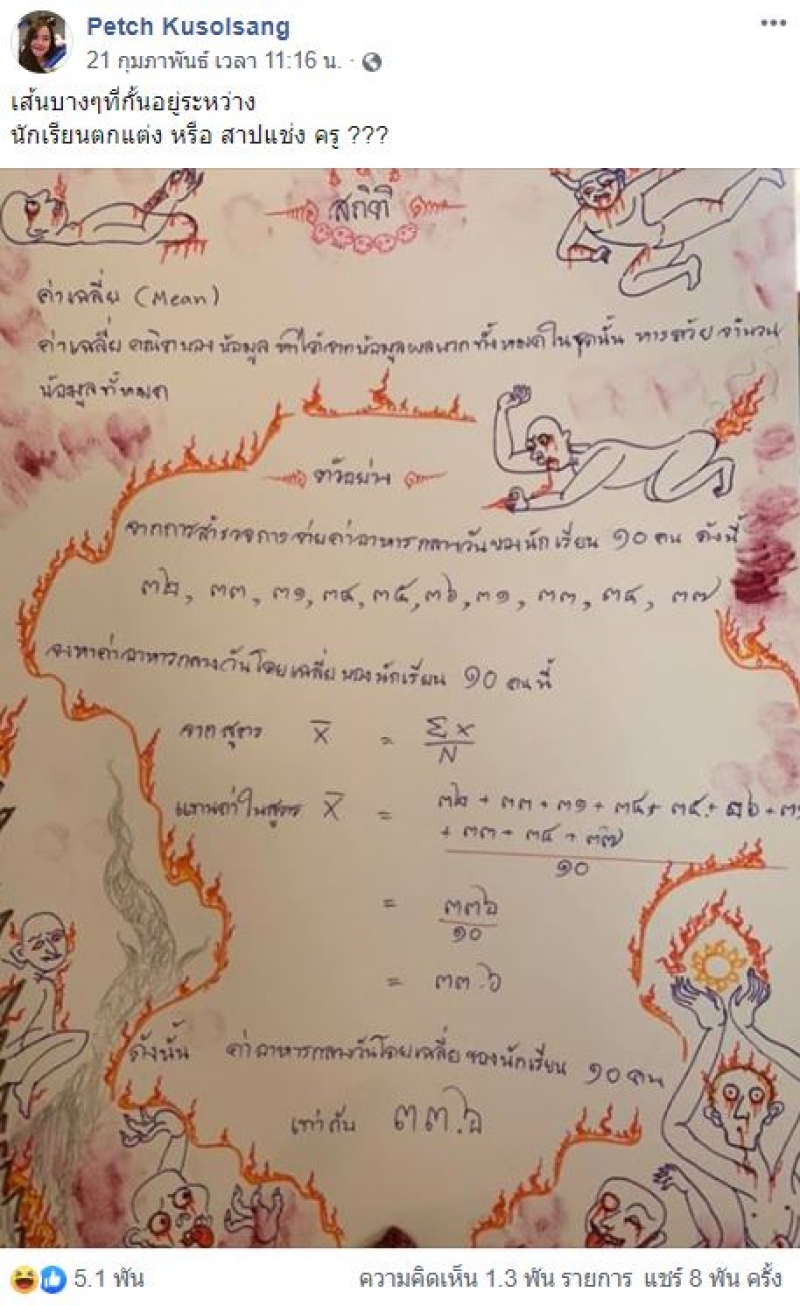 Petch Kusolsang
21 กุมภาพันธ์ เวลา 11:16 น. ·
เส้นบางๆที่กั้นอยู่ระหว่าง
นักเรียนตกแต่ง หรือ สาปแช่ง ครู ???
สถิติ
ค่าเฉลี่ย (Mean)
ค่าเฉลี่ย คณิตของข้อมูล หาได้จากข้อมูลผลบวกทั้งหมดในชุดนั้น หารด้วย จำนวน
ข้อมูลทั้งหมด
ตัวอย่าง
จากการสำรวจการจ่ายค่าอาหารกลางวันของนักเรียน ๑๐ คน ดังนี้
๓๒, ๓๓, ๓๑, ๓๔, ๓๕, ๓๖, ๓๑, ๓๓, ๓๔, ๓๗
จงหาค่าอาหารกลางวันโดยเฉลี่ยของนักเรียน ๑๐ คนนี้
จากสูตร X̄ = Σx
N
แทนค่าในสูตร X̄ = ๓๒ + ๓๓ + ๓๑ + ๓๔ + ๓๕ + ๓๖ + ๓๑
+ ๓๓ + ๓๔ + ๓๗
๑๐
= ๓๓๖
๑๐
= ๓๓.๖
ดังนั้น ค่าอาหารกลางวันโดยเฉลี่ยของนักเรียน ๑๐ คน
เท่ากับ ๓๓.๖
5.1 พัน
ความคิดเห็น 1.3 พัน รายการ แชร์ 8 พัน ครั้ง